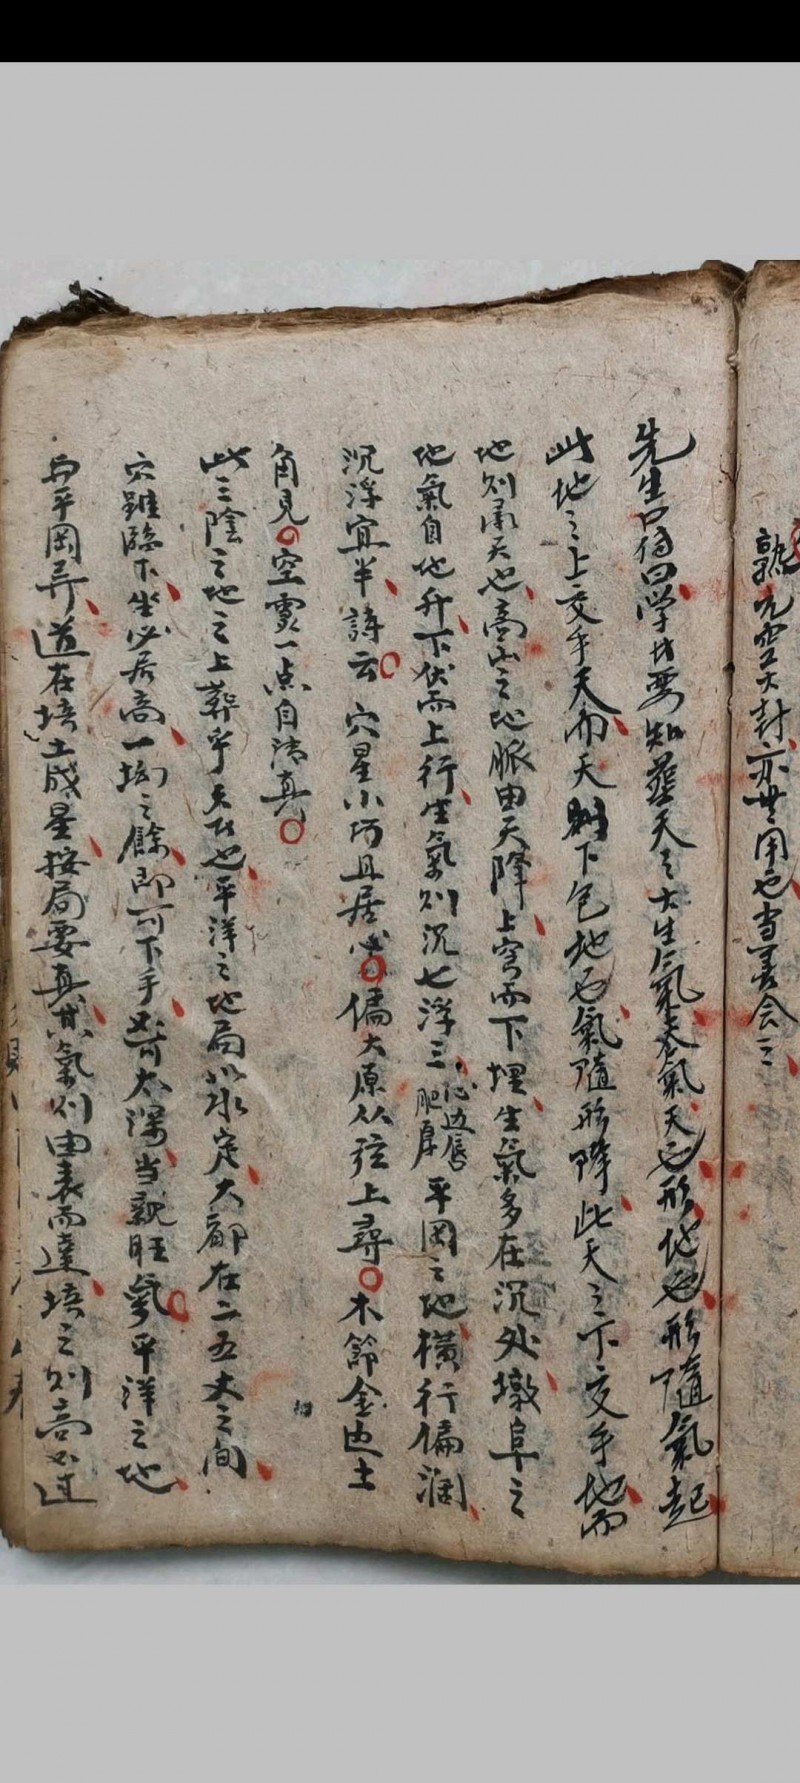 熟九空大卦亦世用也当善会之
先生口傳曰学者要知葬天之大生氣奉氣天也形地也形隨氣起
此地之上交乎天而天則下包地也氣隨形降此天之下交乎地而
地則承天也高山之地脈由天降上穹而下埋生氣多在沉处墩阜之
地氣自地升下伏而上行生氣則沉七浮三
心边唇肥厚
平岡之地橫行偏濶
沉浮宜半詩云 穴星小巧且居心 僑大原从弦上尋 木節金边土
角見 空霊一点自清真
此三陰之地之上葬乎 也平洋之地局以水定大都在二五丈之间
穴雖臨下坐必居高一坳之餘即可下手 太深当就旺氣 平洋之地
与平岡异道在培土成星按局要真其氣則由表而達培之則高必过